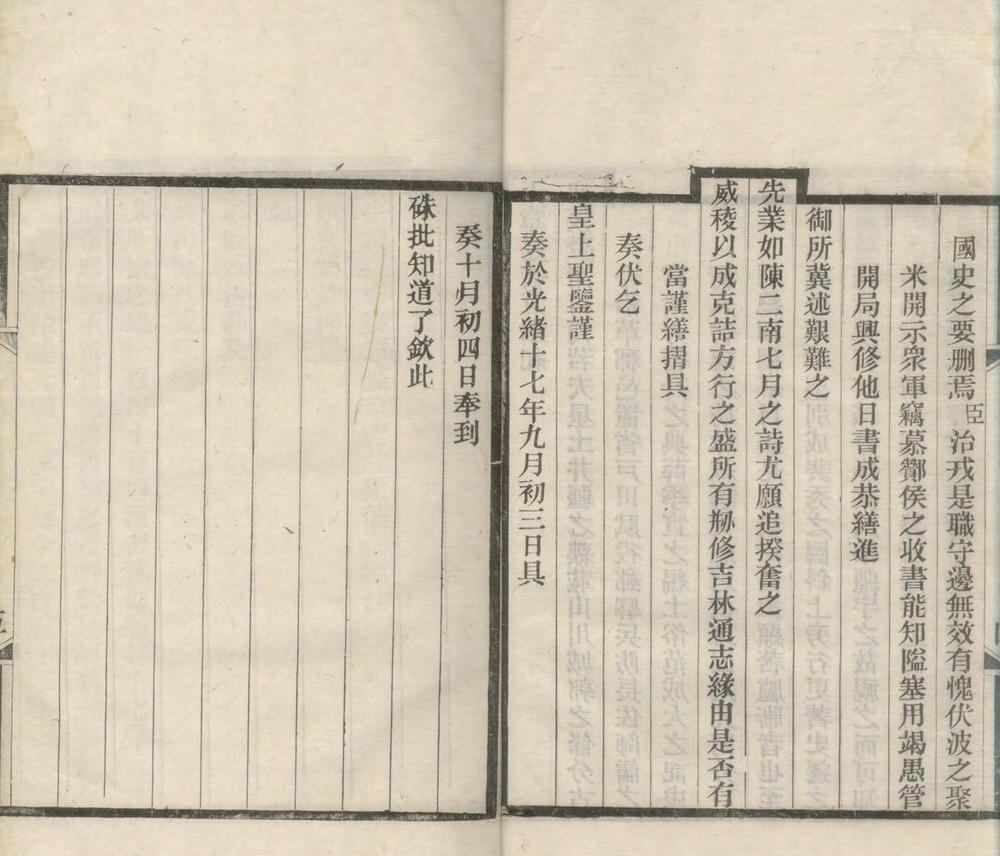 國史之要删焉臣治戎是職守邊無效有愧伏波之聚
米開示衆軍竊慕酇侯之收書能知隘塞用竭愚管
開局興修他日書成恭繕進
御所冀述艱難之
先業如陳二南七月之詩尤願追揆奮之
威稜以成克詰方行之盛所有剙修吉林通志緣由是否有
當謹繕摺具
奏伏乞
皇上聖鑒謹
奏於光緒十七年九月初三日具
奏十月初四日奉到
硃批知道了欽此